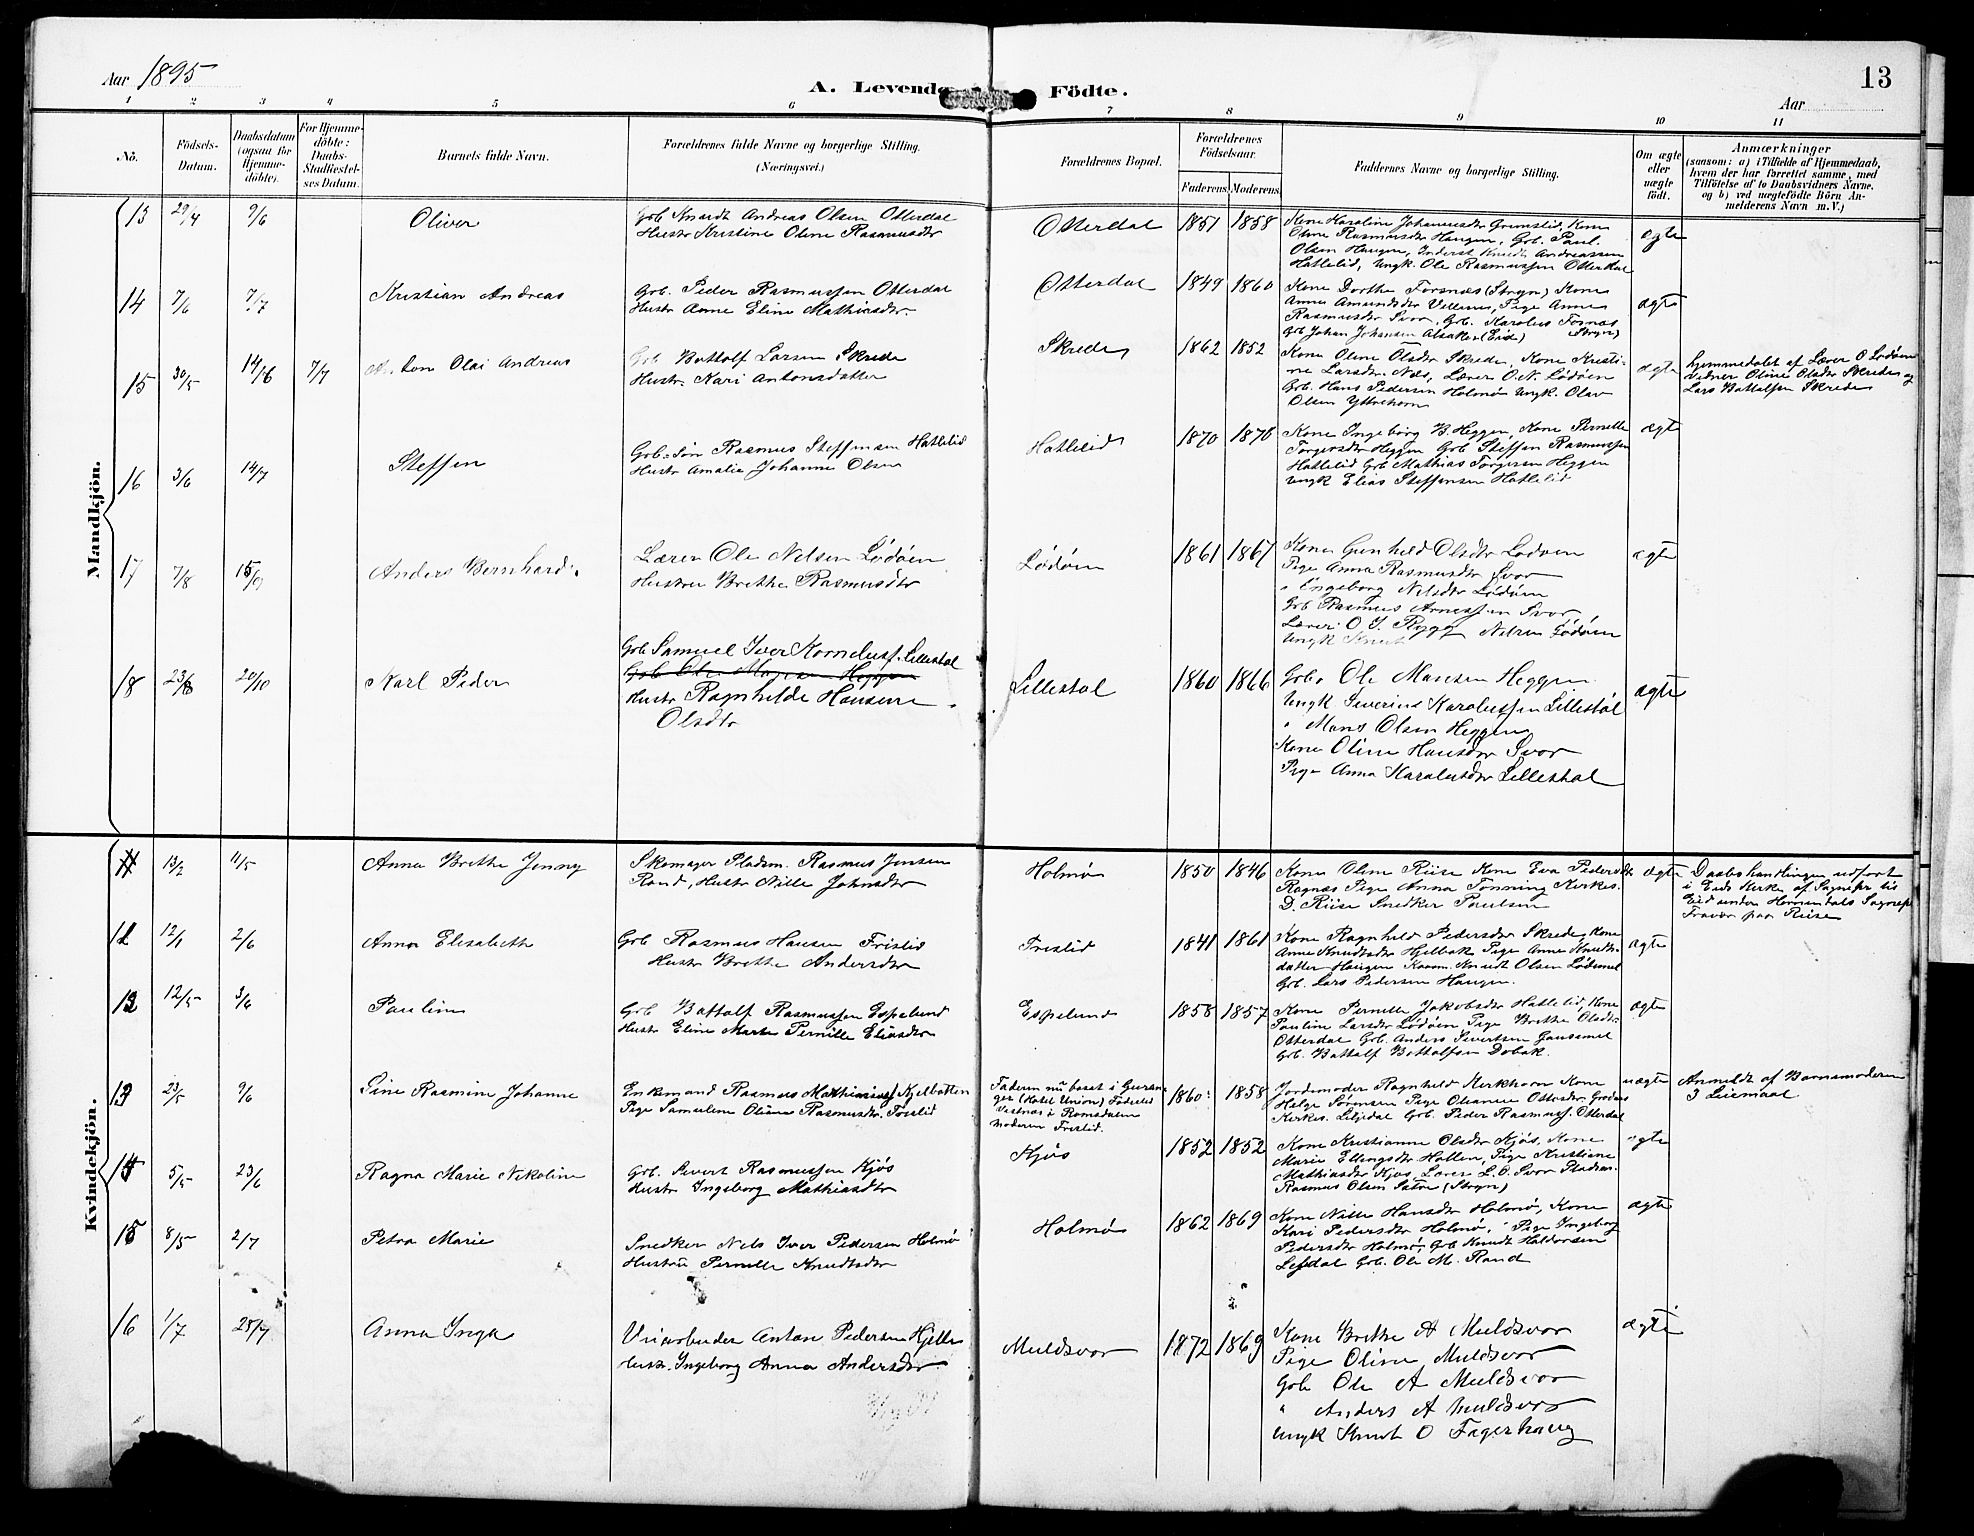 Aar 1895
A. Levende Födte.
13
Aar
1 2 3 4 5 6 7 8 9 10 11
No.
Födsels-Datum.
Daabsdatum (ogsaa for Hjemme-döbte).
For Hjemme-döbte: Daabs-Stadfæstel-ses Datum.
Barnets fulde Navn.
Forældrenes fulde Navne og borgerlige Stilling. (Næringsvei.)
Forældrenes Bopæl.
Forældrenes Födselsaar.
Faderens. Moderens.
Faddernes Navne og borgerlige Stilling.
Om ægte eller uægte födt.
Anmærkninger
(saasom: a) i Tilfælde af Hjemmedaab,
hvem der har forrettet samme, med
Tilföielse af to Daabsvidners Navne,
og b) ved uægtefödte Börn An-
melderens Navn m.V.)
Mandkjön.
13 29/4 9/6 Oliver
Gbr Knudt Andreas Olsen Otterdal
Hustr Kristine Oline Rasmusdtr
Otterdal 1851 1858
Kone Karoline Johannesdtr Grimstid, Kone
Oline Rasmusdtr Haugen, Gbr. Paul
Olsen Haugen, Inderst Knudt Andreassen
Hatlelid, Ungk. Ole Rasmussen Otterdal
ægte
14 7/6 7/7 Kristian Andreas
Gbr. Peder Rasmussen Otterdal
Hustr Anne Eline Mathiasdtr.
Otterdal 1849 1860
Kone Dorthe Forsnæs (Stryn) Kone
Anna Amundsdtr Pige Anne
Rasmusdtr Svor, Gbr. Karolus Fornæs
Gbr Johan Johansen (Eide) (Stryn)
ægte
15 30/5 14/6 7/7 Anton Olai Andreas
Gbr Bottolf Larsen Skrede
Hustr. Kari Antonsdatter
Skrede 1862 1852
Kone Oline Olsdtr Skrede, Kone Kristi-
ne Larsdtr. Nes, Lærer O. N. Lödöen
Gbr. Hans Pedersen Holmö Ungk. Olav
Olsen Yttrehorn
ægte
hjemmedöbt af Lærer O Lödöen
Vidner Oline Olsdtr Skrede og
Lars Bottolfsen Skrede
16 3/6 14/7 Steffen
Gbr.-Sön Rasmus Steffensen Hatlelid
Hustr Amalia Johanne Olsen
Hatlelid 1870 1870
Kone Ingeborg B. Heggen, Kone Pernille
Torgersdtr Heggen Gbr Steffen Rasmussen
Hatlelid Gbr Mathias Torgersen Heggen
Ungk Elias Steffensen Hatlelid
ægte
17 7/8 15/9 Anders Bernhard
Lærer Ole Nelsen Lödöen
Hustru Brethe Rasmusdtr
Lödöen 1861 1867
Kone Gunhild Olsdtr Lödöen
Pige Anna Rasmusdtr Svor
" Engeborg Nelsdtr Lödöen
Gbr Rasmus Arnessen Svor
Lærer O. J. Rygg
Ungk Knut Nelsen Lödöen
ægte
18 23/8 20/10 Karl Peder
Gbr Samuel Iver Kornelius. Lillestöl
Gbr Ole Monsen Heggen
Hustr Ragnhilde Hansine
Olsdtr
Lillestöl 1860 1866
Gbr. Ole Monsen Heggen
Ungk Severius Karolussen Lillestöl
" Mons Olsen Heggen
Kone Oline Hansdtr Svor
Pige Anna Karolusdtr Lillestöl
ægte
Kvindekjön.
11 13/2 11/5 Anna Brethe Jenny
Skomager Pladsm. Rasmus Jensen
Rand, Hustr Nille Johnsdtr
Holmö 1850 1846
Kone Oline Riise Kone Eva Pedersdtr
Ragnæs Pige Anna Tonning Kirkes.
D. Riise Snedker Paulsen
ægte
Daabshandlingen udfört
i Eids Kirke af Sognepr til
Eid under Hornindals Sognepr
Fravær paa Reise
12 12/1 2/6 Anna Elisabeth
Gbr Rasmus Hansen Fristid
Hustr Brethe Andersdtr
Fristid 1841 1861
Kone Ragnhild Pedersdtr Skrede, Kone
Anne Knudtsdtr Hjelbak Pige Anne Knudts-
datter Haugen Knudt Olsen Lödemel
Gbr. Lars Pedersen Haugen.
ægte
12 12/5 3/6 Pauline
Gbr Bottolf Rasmussen Espelund
Hustr Eline Marte Pernille Eliasdtr
Espelund 1858 1857
Kone Pernille Jakobsdtr Hatlelid, Kone
Pauline Larsdtr Lödöen Pige Brethe Olsdtr
Otterdal Gbr. Anders Sivertsen Gausemel
Gbr. Bottolf Bottolfsen Dobak.
ægte
13 23/5 9/6 Sine Rasmine Johanne
Enkemand Rasmus Mathiasen Kjelbotten
Pige Samuline Oline Rasmusdtr Fristid
Faderen nu bosat i Geiran-
ger (Hotel Union) Födested
Vestnes i Romsdalen
Moderen Fristid.
1860 1858
Jordemoder Ragnhild Kirkhorn Kone
Helge Sörensen Pige Oleanne Ottesdtr Grodaas
Kirkes. Liljedal Gbr. Peder Rasmuss. Otterdal
uægte
Anmeldt af Barnemoderen
3 Leiermaal
14 5/5 23/6 Ragna Marie Nikoline
Gbr. Sivert Rasmussen Kjös
Hustr Ingeborg Mathiasdtr
Kjös 1852 1852
Kone Kristianne Olsdtr Kjös, Kone
Marie Ellingsdtr Hollen, Pige Kristiane
Mathiasdtr Kjös, Lærer L. O. Svor Pladsm.
Rasmus Olsen Sætre (Stryn)
ægte
15 8/5 2/7 Petra Marie
Snedker Nels Iver Pedersen Holmö
Hustru Pernille Knudtsdtr
Holmö 1862 1869
Kone Nille Hansdtr Holmö, Kone
Kari Pedersdtr Holmö, Pige Ingeborg
Pedersdtr Holmö, Gbr Knudt Haldorsen
Leydal Gbr. Ole M. Rand
ægte
16 1/7 25/7 Anna Inga
Veiarbeider Anton Pedersen Hjelle
Hustr. Ingeborg Anna Andersdtr
Muldsvor 1872 1869
Kone Brethe A Muldsvor
Pige Oline Muldsvor
Gbr Ole A Muldsvor
" Anders A Muldsvor
Ungk Knut O Fagerhaug
ægte